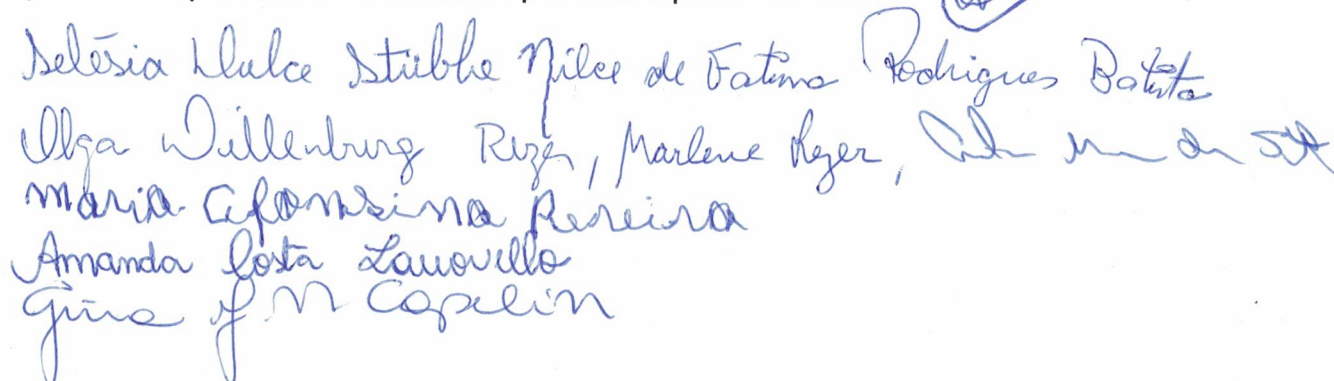 Selésia Dulce Stübbe Nilce de Fatima Rodrigues Batista
Olga Willenburg Rezer, Marlene Rezer,
Maria Afonsina Pereira
Amanda Costa
Gina J M Capelin